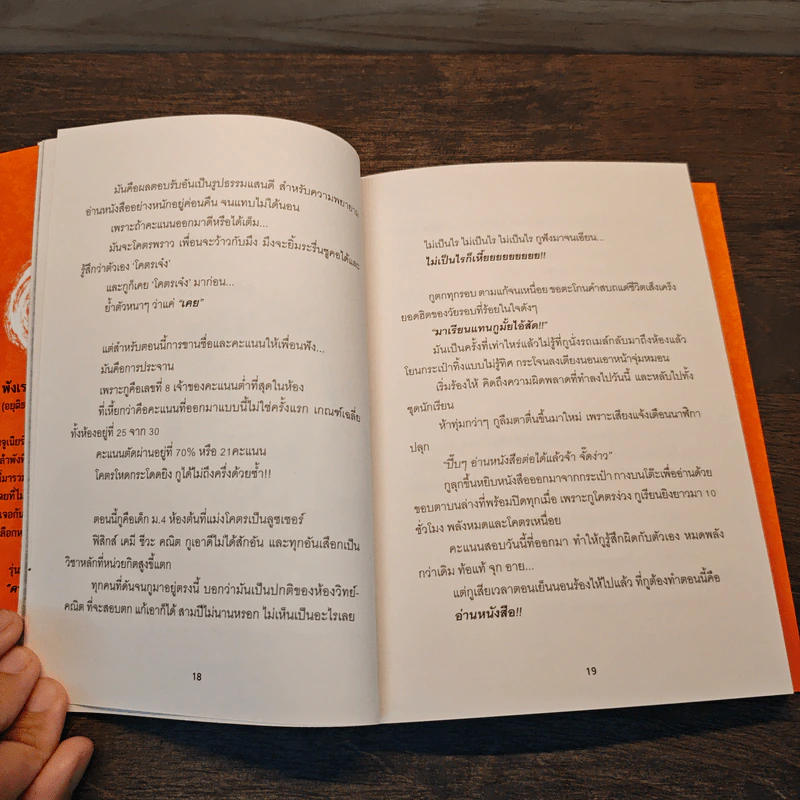 มันคือผลตอบรับอันเป็นรูปธรรมแสนดี สำหรับความพยายาม
อ่านหนังสืออย่างหนักอยู่ค่อนคืน จนแทบไม่ได้นอน
เพราะถ้าคะแนนออกมาดีหรือได้เต็ม...
มันจะโคตรพราว เพื่อนจะว้าวกับมึง มึงจะยิ้มระรื่นชูคอได้และ
รู้สึกว่าตัวเอง ‘โคตรเจ๋ง’
และกูก็เคย ‘โคตรเจ๋ง’ มาก่อน...
ย้ำตัวหนาๆ ว่าแค่ “เคย”
แต่สำหรับตอนนี้การขานชื่อและคะแนนให้เพื่อนฟัง...
มันคือการประจาน
เพราะกูคือเลขที่ 8 เจ้าของคะแนนต่ำที่สุดในห้อง
ที่เหี้ยกว่าคือคะแนนที่ออกมาแบบนี้ไม่ใช่ครั้งแรก เกณฑ์เฉลี่ย
ทั้งห้องอยู่ที่ 25 จาก 30
คะแนนตัดผ่านอยู่ที่ 70% หรือ 21คะแนน
โคตรโหดกระโดดยิง กูได้ไม่ถึงครึ่งด้วยซ้ำ!!
ตอนนี้กูคือเด็ก ม.4 ห้องต้นที่แม่งโคตรเป็นลูซเซอร์
ฟิสิกส์ เคมี ชีวะ คณิต กูเอาดีไม่ได้สักอัน และทุกอันเสือกเป็น
วิชาหลักที่หน่วยกิตสูงขี้แตก
ทุกคนที่ดันจนกูมาอยู่ตรงนี้ บอกว่ามันเป็นปกติของห้องวิทย์-
คณิต ที่จะสอบตก แก้เอาก็ได้ สามปีไม่นานหรอก ไม่เห็นเป็นอะไรเลย
18
ไม่เป็นไร ไม่เป็นไร ไม่เป็นไร กูฟังมาจนเอียน...
ไม่เป็นไรก็เหี้ยยยยยยยยย!!
กูตกทุกรอบ ตามแก้จนเหนื่อย ขอตะโกนคำสบถแด่ชีวิตเส็งเคร็ง
ยอดฮิตของวัยรอบที่ร้อยในใจดังๆ
“มาเรียนแทนกูมั้ยไอ้สัด!!”
มันเป็นครั้งที่เท่าไหร่แล้วไม่รู้ที่กูนั่งรถเมล์กลับมาถึงห้องแล้ว
โยนกระเป๋าทิ้งแบบไม่รู้ทิศ กระโจนลงเตียงนอนเอาหน้าจุ่มหมอน
เริ่มร้องไห้ คิดถึงความผิดพลาดที่ทำลงไปวันนี้ และหลับไปทั้ง
ชุดนักเรียน
ห้าทุ่มกว่าๆ กูลืมตาตื่นขึ้นมาใหม่ เพราะเสียงแจ้งเตือนนาฬิกา
ปลุก
“ปี๊บๆ อ่านหนังสือต่อได้แล้วจ้า จั๊ดง่าว”
กูลุกขึ้นหยิบหนังสือออกมาจากกระเป๋า กางบนโต๊ะเพื่ออ่านด้วย
ขอบตาบนล่างที่พร้อมปิดทุกเมื่อ เพราะกูโคตรง่วง กูเรียนยิงยาวมา 10
ชั่วโมง พลังหมดและโคตรเหนื่อย
คะแนนสอบวันนี้ที่ออกมา ทำให้กูรู้สึกผิดกับตัวเอง หมดพลัง
กว่าเดิม ท้อแท้ จุก อาย...
แต่กูเสียเวลาตอนเย็นนอนร้องไห้ไปแล้ว ที่กูต้องทำตอนนี้คือ
อ่านหนังสือ!!
19